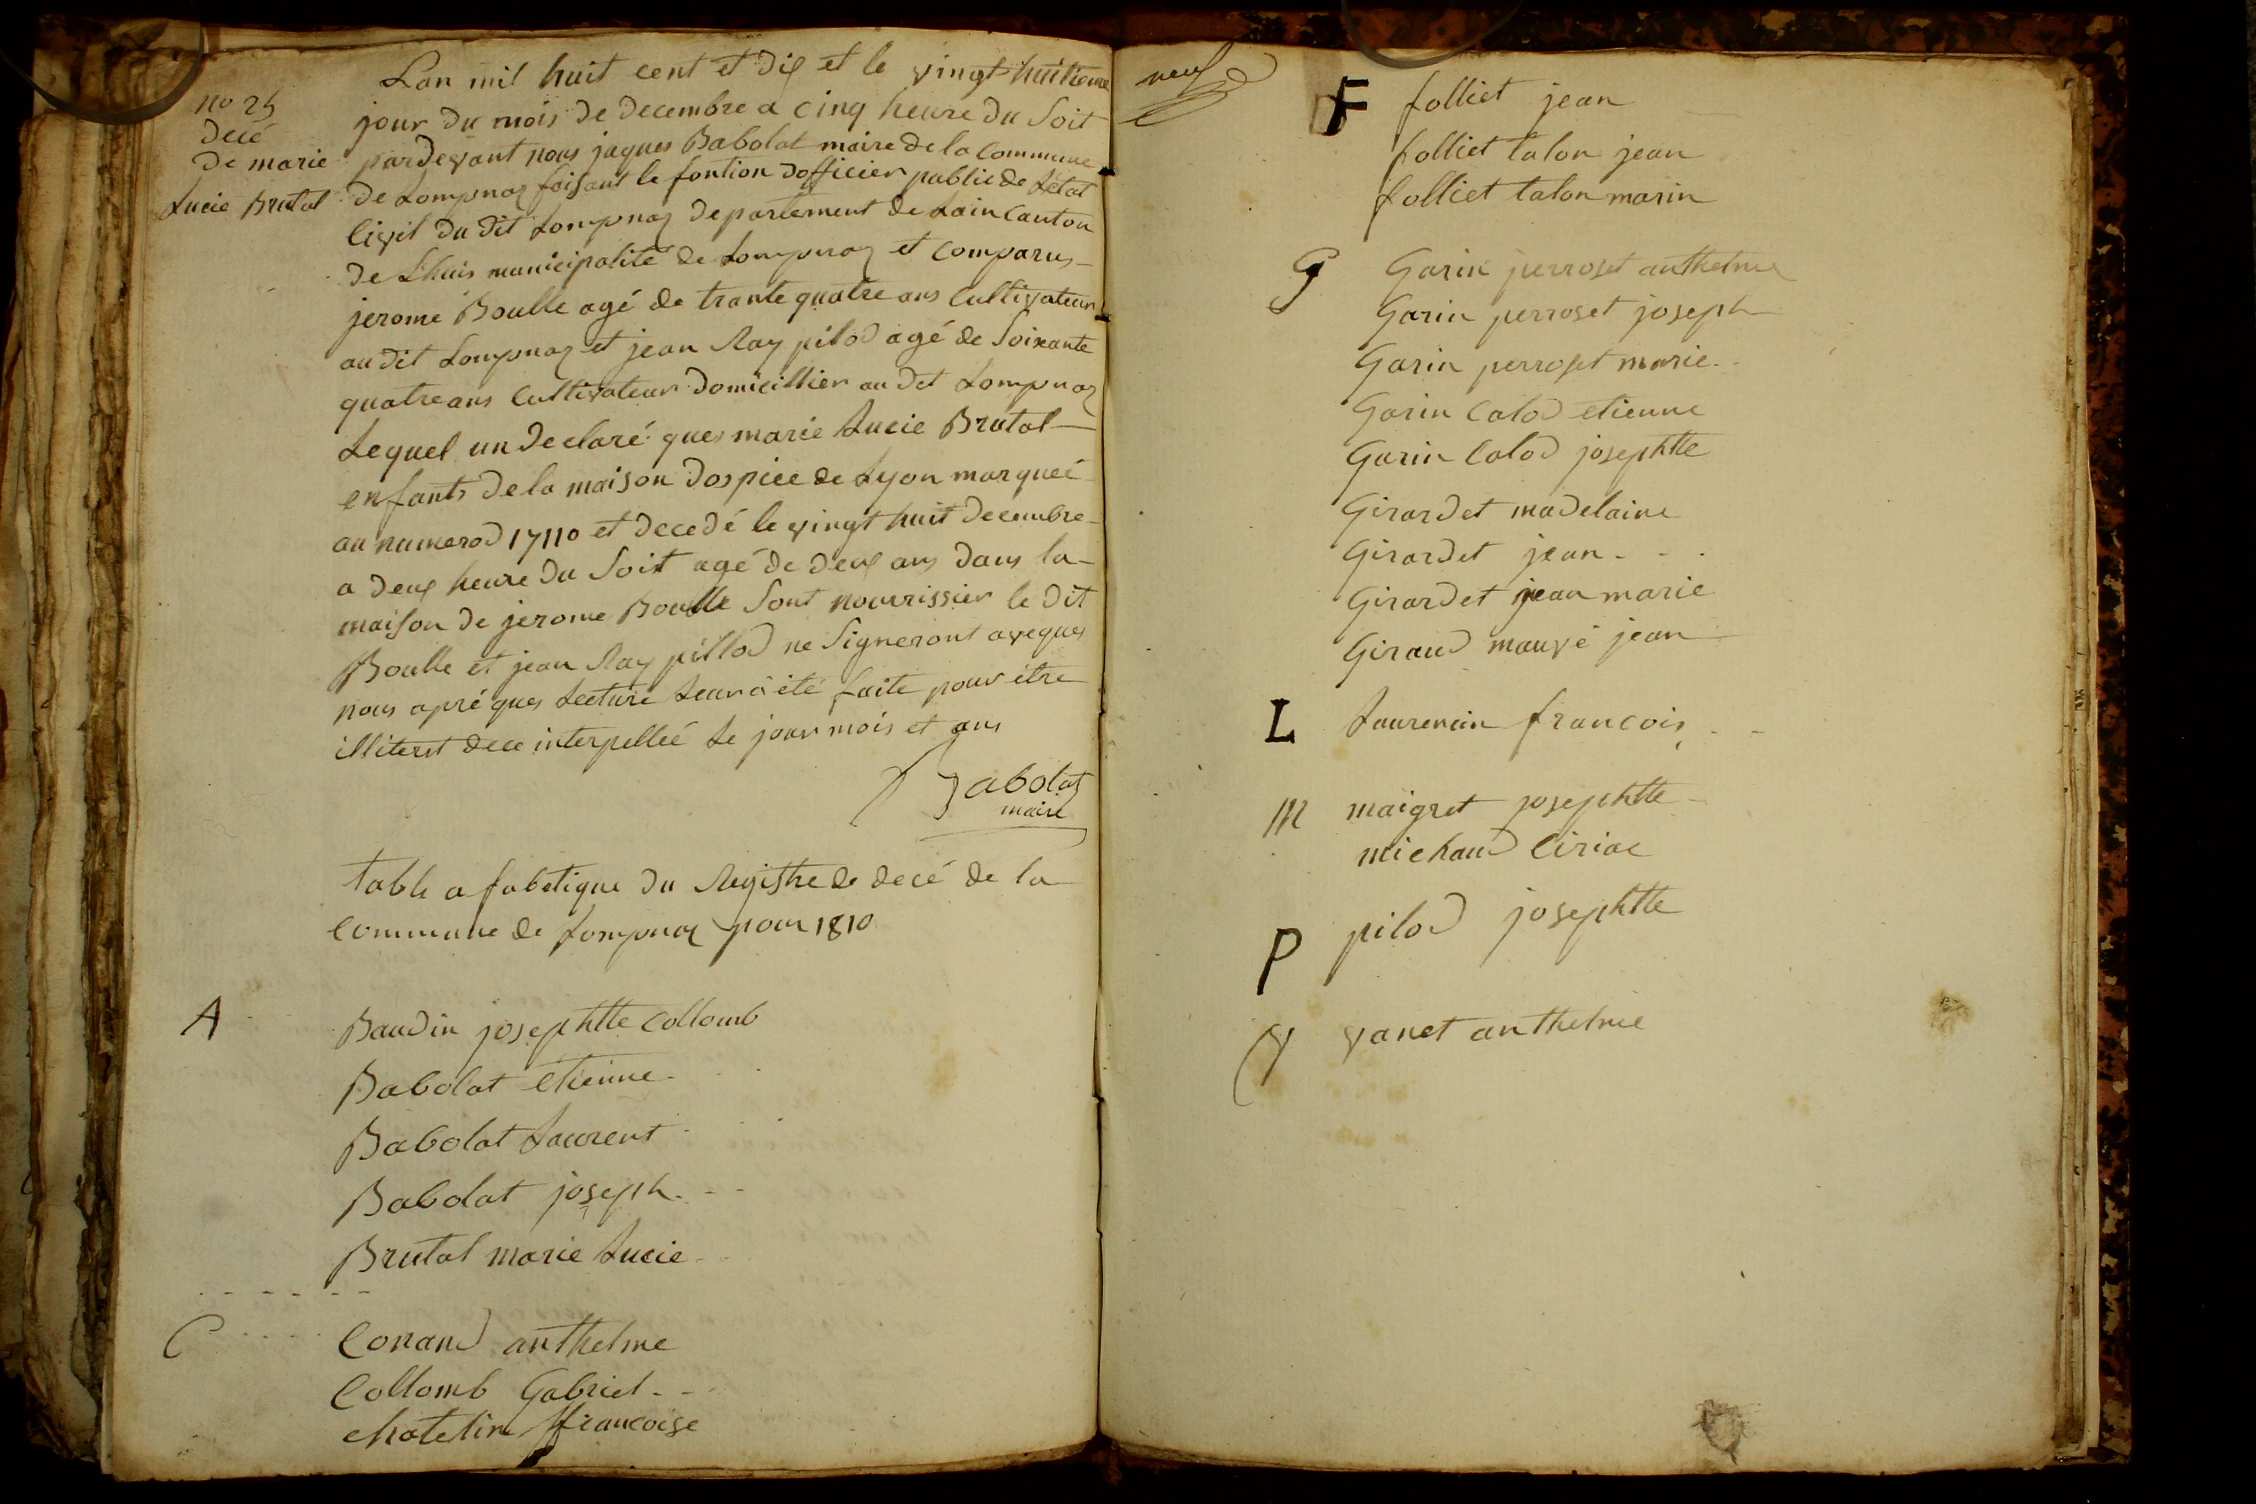 Lan mil huit cent et dix et le vingt huitieme
jour du mois de decembre a cinq heure du Soit
pardevant nous jaques Babolat maire de la Commune
de Lompnaz faisant le fontion dofficier public de Letat
Civil du dit Lompnaz departement de Lain Canton
de Lhuis municipalité de Lompnaz et comparus
jerome Boulle agé de trante quatre ans Cultivateur
au dit Lompnaz et jean Ray pilod agé de Soixante
quatre ans Cultivateur domicillier au dit Lompnaz
Lequel un declaré ques marie Lucie Brutal
enfants de la maison dospice de Lyon marqueé
au numerod 17110 et decedé le vingt huit decembre
a deux heure du Soit agé de deux ans dans la
maison de jerome Boulle Sont nourrissier le dit
Boulle et jean Ray pillod ne Signeront aveques
nous apré ques Lecture Leur a été faite pour être
illiteret dece interpelleé Le jour mois et ans
Babolat
maire
no 25
decé
de marie
Lucie Brutal
table afabetique du Registre de decé de la
Commune de Lompnaz pour 1810
A
Baudin josephtte Collomb
Babolat etienne
Babolat Laurent
Babolat joseph
Brutal marie Lucie
C
Conand anthelme
Collomb Gabriel
chatelin ffrancoise
neuf
F folliet jean
folliet talon jean
folliet talon marin
G Garin perroset anthelme
Garin perroset joseph
Garin perroset marie
Garin Calod etienne
Garin Calod josephtte
Girardet madelaine
Girardet jean
Girardet jean marie
Giraud mauvé jean
L Laurencin francois
M maigret josephtte
michaud Ciriac
P pilod josephtte
V vanet anthelme